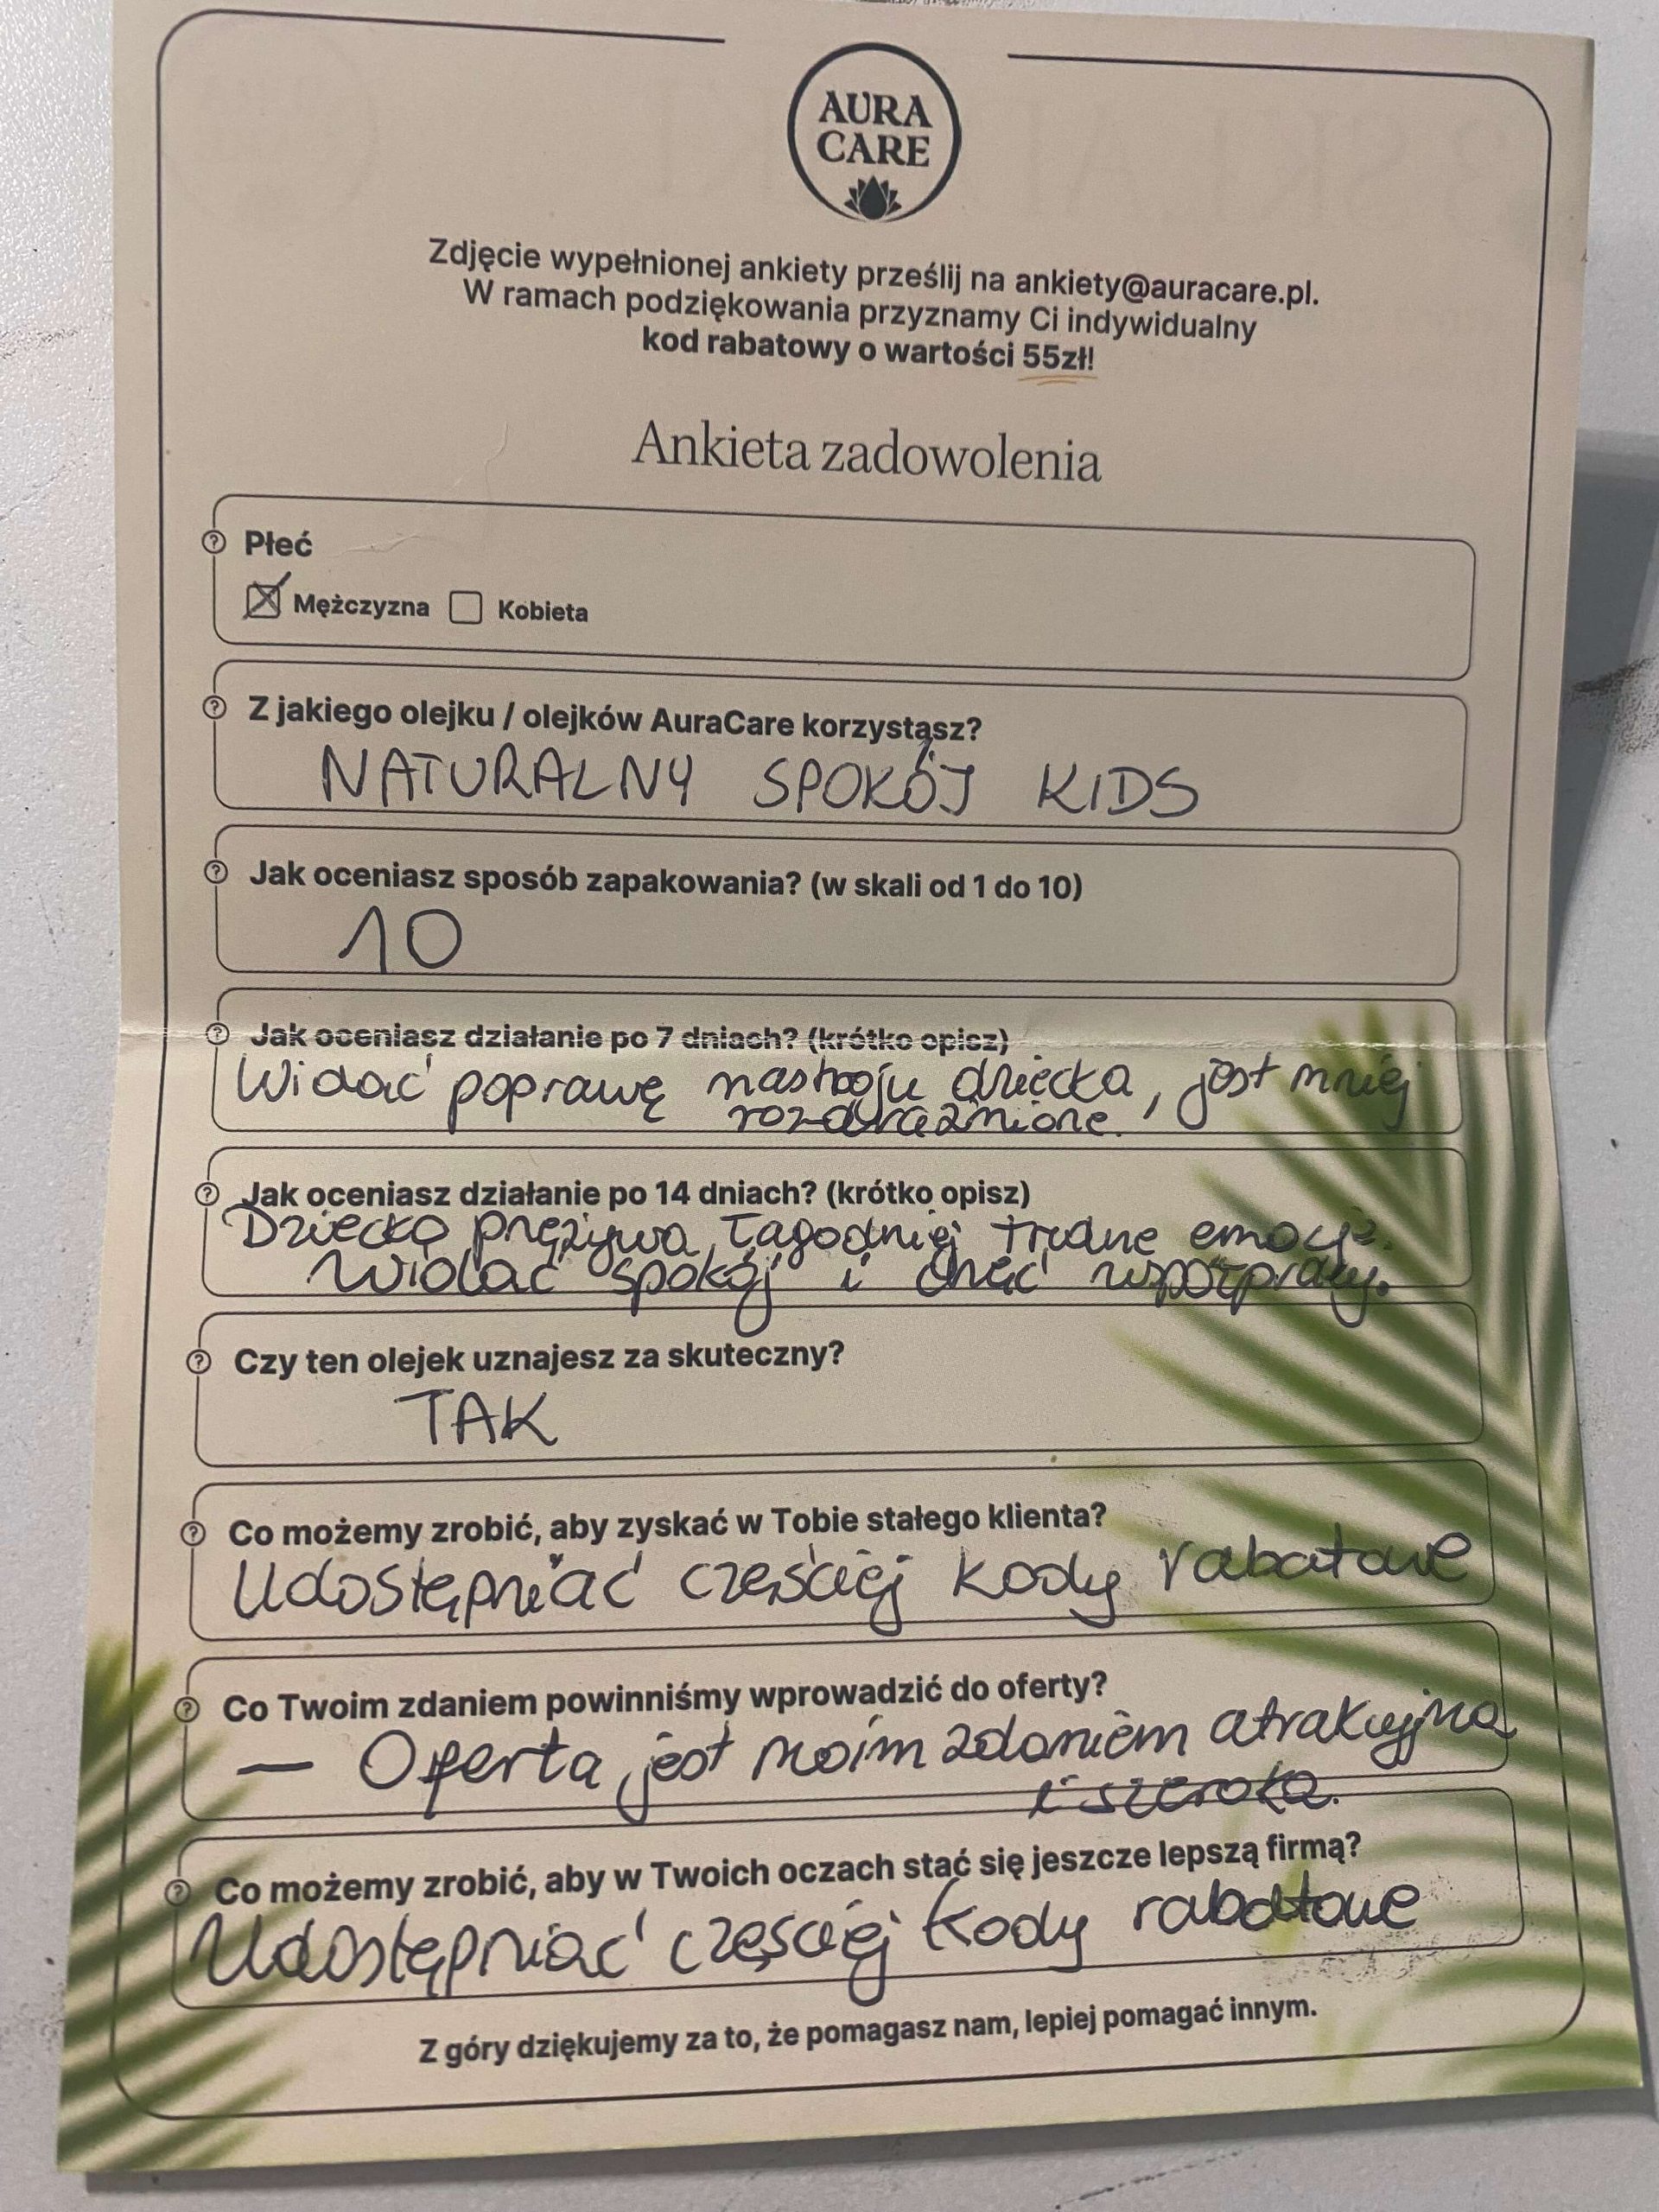 AURA
CARE
Zdjęcie wypełnionej ankiety prześlij na ankiety@auracare.pl.
W ramach podziękowania przyznamy Ci indywidualny
kod rabatowy o wartości 55zł!
Ankieta zadowolenia
Płeć
Mężczyzna Kobieta
Z jakiego olejku / olejków AuraCare korzystasz?
NATURALNY SPOKÓJ KIDS
Jak oceniasz sposób zapakowania? (w skali od 1 do 10)
10
Jak oceniasz działanie po 7 dniach? (krótko opisz)
Widać poprawę nastroju dziecka, jest mniej
rozdrażnione.
Jak oceniasz działanie po 14 dniach? (krótko opisz)
Dziecko przeżywa łagodniej trudne emocje.
Widać spokój i chęć współpracy.
Czy ten olejek uznajesz za skuteczny?
TAK
Co możemy zrobić, aby zyskać w Tobie stałego klienta?
Udostępniać częściej kody rabatowe
Co Twoim zdaniem powinniśmy wprowadzić do oferty?
— Oferta jest moim zdaniem atrakcyjna
i szeroka.
Co możemy zrobić, aby w Twoich oczach stać się jeszcze lepszą firmą?
Udostępniać częściej kody rabatowe
Z góry dziękujemy za to, że pomagasz nam, lepiej pomagać innym.